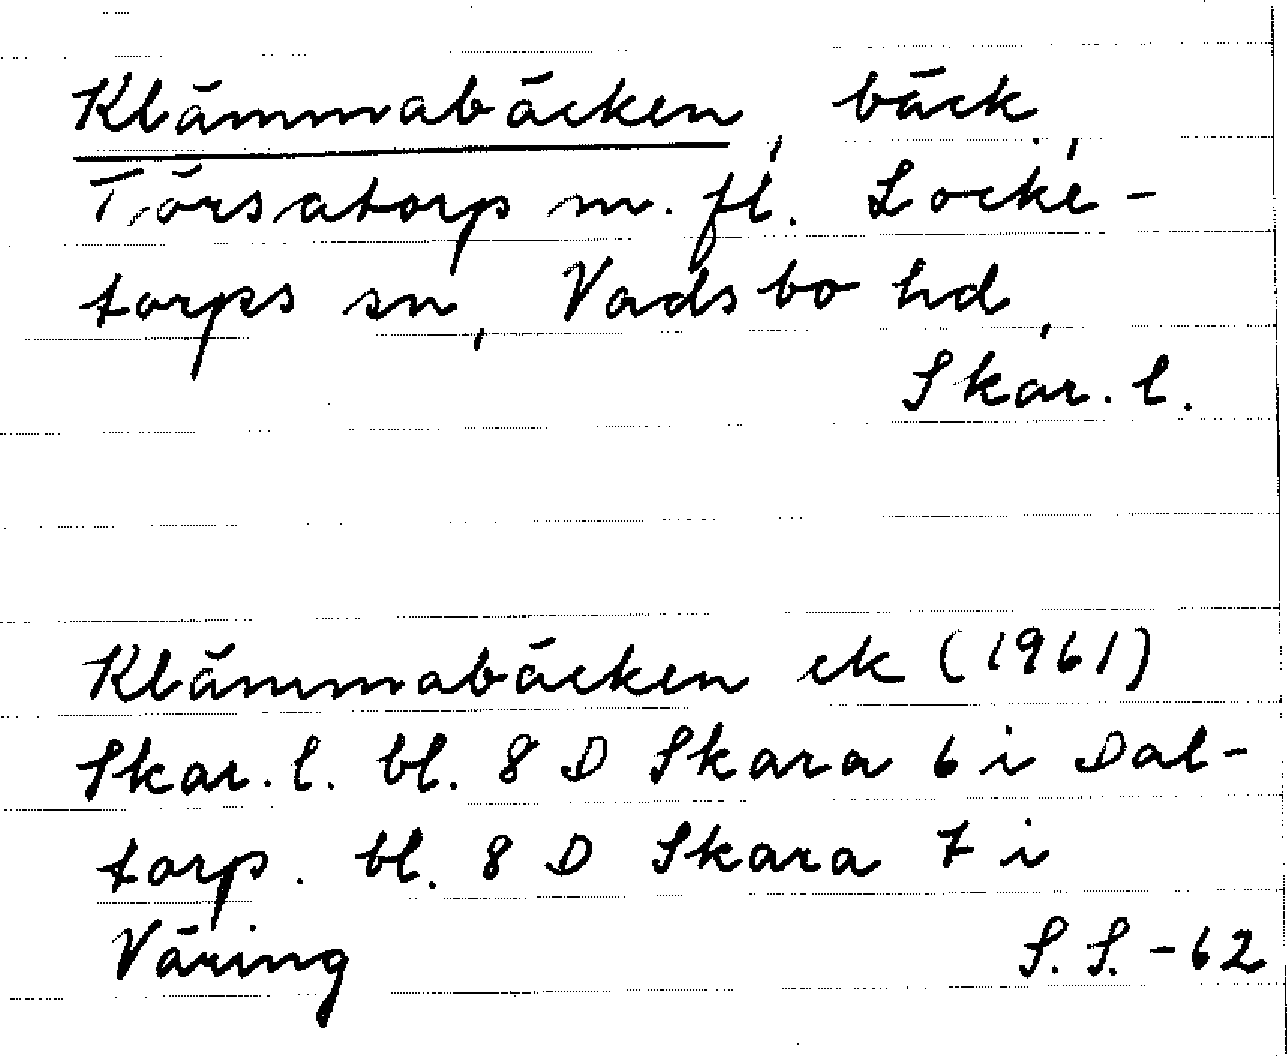 Klämmabäcken, bäck,
Törsatorp m. fl. Locke-
torps sn, Vadsbo hd,
Skar. l.
Klämmabäcken ek (1961)
Skar. l. bl. 8 D Skara 6 i Dal-
torp. bl. 8 D Skara 7 i
Väring S. S. -62